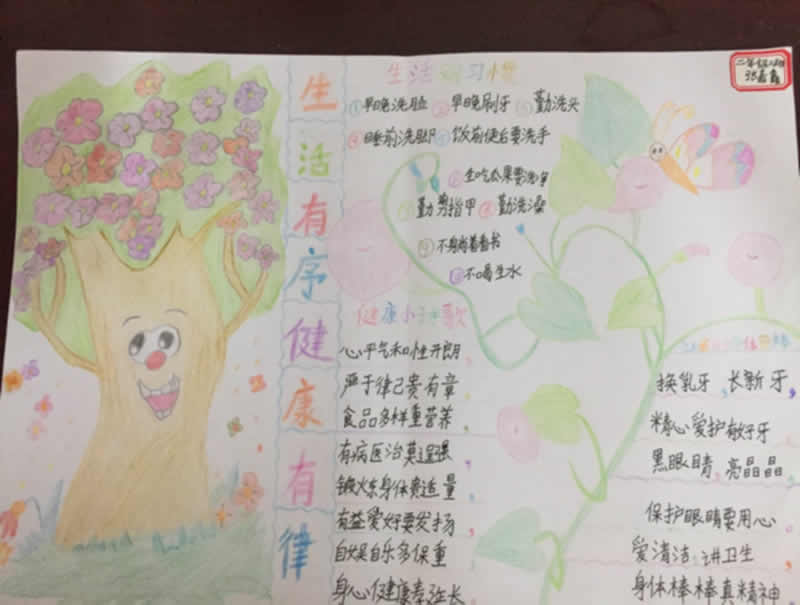 生活有序健康有律
生活好习惯
①早晚洗脸 ②早晚刷牙 ③勤洗头
④睡前洗脚 ⑤饭前便后要洗手
⑥生吃瓜果要洗净
⑦勤剪指甲 ⑧勤洗澡
⑨不躺着看书
不喝生水
健康小子歌
心平气和性开朗
严于律己贵有章
食品多样重营养
有病医治莫逞强
锻炼身体贵适量
有益爱好要发扬
自娱自乐多保重
身心健康寿延长
换乳牙，长新牙，
精心爱护有好牙
黑眼睛，亮晶晶，
保护眼睛要用心
爱清洁，讲卫生
身体棒棒真精神